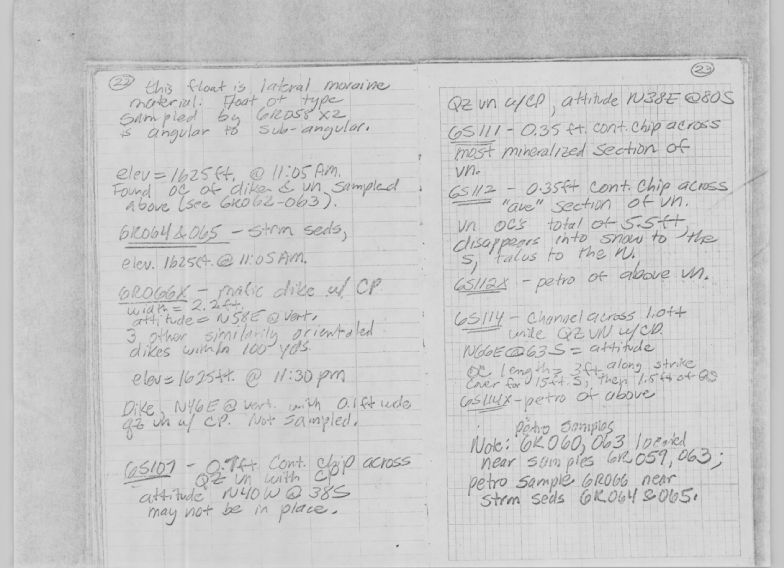 22
this float is lateral moraine
material. Float of type
sampled by 6R058X2
is angular to sub-angular.
elev = 1625ft. @ 11:05 AM.
Found OC of dike & vn sampled
above (see 6R062-063).
6R064 & 065 - strm seds,
elev. 1625ft. @ 11:05 AM.
6R066X - mafic dike w/ CP
width = 2.2ft.
attitude = N58E @ vert.
3 other similarly orientaled
dikes within 100 yds.
elev = 1625ft. @ 11:30 pm
Dike, N46E @ vert. with 0.1ft wide
qz vn w/ CP. Not sampled.
6S107 - 0.7ft. Cont. chip across
QZ vn with CP
attitude N40W @ 38S
may not be in place.
23
QZ vn w/CP, attitude N38E @80S
6S111 - 0.35 ft. cont. chip across
most mineralized section of
vn.
6S112 - 0.35ft cont. chip across
"ave" section of vn.
vn OC's total of 5.5ft,
disappears into snow to the
S, talus to the N.
6S112X - petro of above vn.
6S114 - Channel across 1.0ft
wide QZ VN w/CP.
N66E@63S = attitude
OC length = 3ft along strike
cover for 15ft. S, then 1.5ft of
6S114X - petro of above
petro samples
Note: 6R060, 063 located
near samples 6R059, 063;
petro sample 6R066 near
strm seds 6R064 & 065.